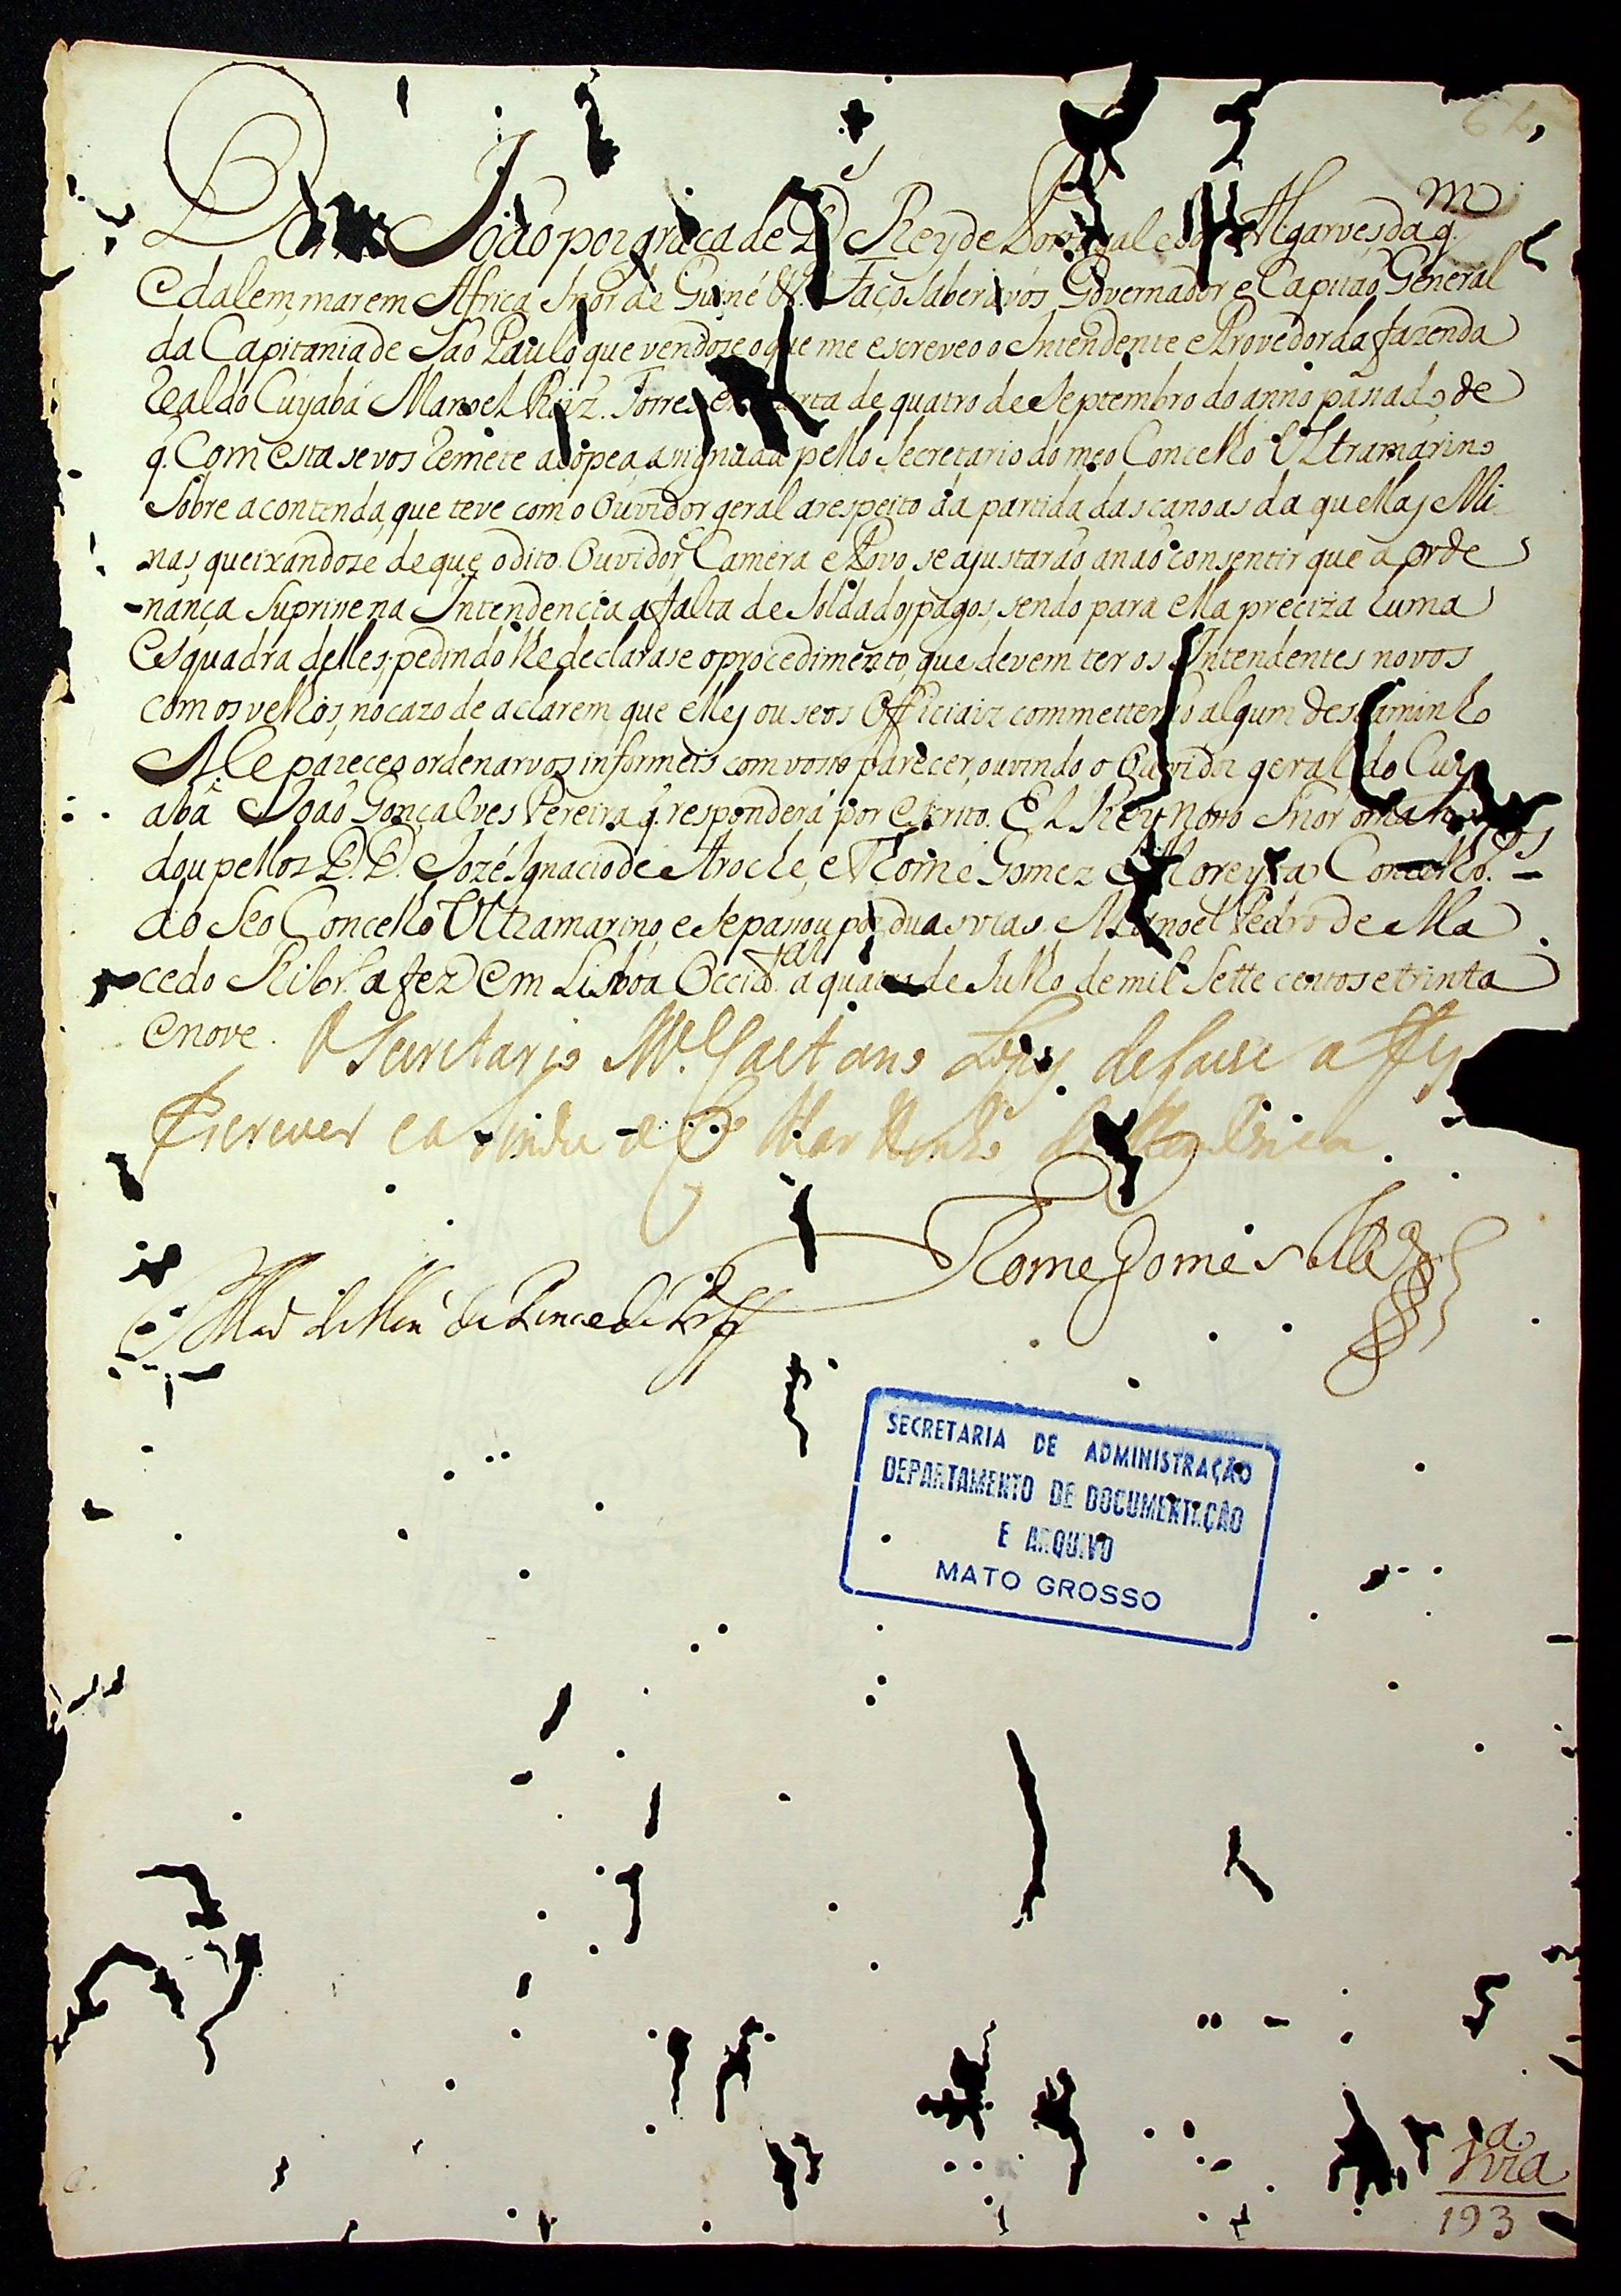 62,
Dom João por graça de Ds. Rey de Portugal e dos Algarves, daq.m
e dalem, mar em Africa Snor. de Guiné &c. Faço saber a vós Governador e Capitaõ General
da Capitania de Saõ Paulo, que vendose o que me escreveo o Intendente e Provedor da fazenda
Real do Cuyabá Manoel Roiz. Torres em carta de quatro de Septembro do anno passado, de
q. Com esta se vos Remete a copea assignada pello Secretario do meo Concelho Ultramarino
Sobre a contenda, que teve com o Ouvidor geral a respeito da partida das canoas daquellas Mi
nas, queixandose de que o dito Ouvidor, Camera e Povo se ajustaraõ a naõ consentir que a orde
-nança suprise na Intendencia a falta de Soldados pagos, sendo para ella preciza huma
Esquadra delles; pedindo lhe declarase o procedimento, que devem ter os Intendentes novos
com os velhos, no cazo de aclarem que elles ou seos Officiaiz commetteraõ algum descaminho
Me pareceo ordenarvos informeis com vosso parecer, ouvindo o Ouvidor geral do Cuy
abá Joaõ Gonçalves Pereira q. responderá por escrito. El Rey nosso Snor o man
dou pellos D.D. Jozé Ignacio de Aroche, e Thome Gomez Moreyra Concelhos.
do Seo Concelho Ultramarino, e se passou por duas vias. Manoel Pedro de Ma
cedo Ribr.o a fez em Lisboa Occidtal. a quatro de Julho de mil sette centos e trinta
e nove. O Secretario Mel. Caetano Lopes de Lavre a fes
Escrever
Thome Gomes Mora
SECRETARIA DE ADMINISTRAÇÃO
DEPARTAMENTO DE DOCUMENTAÇÃO
E ARQUIVO
MATO GROSSO
1a. via
193